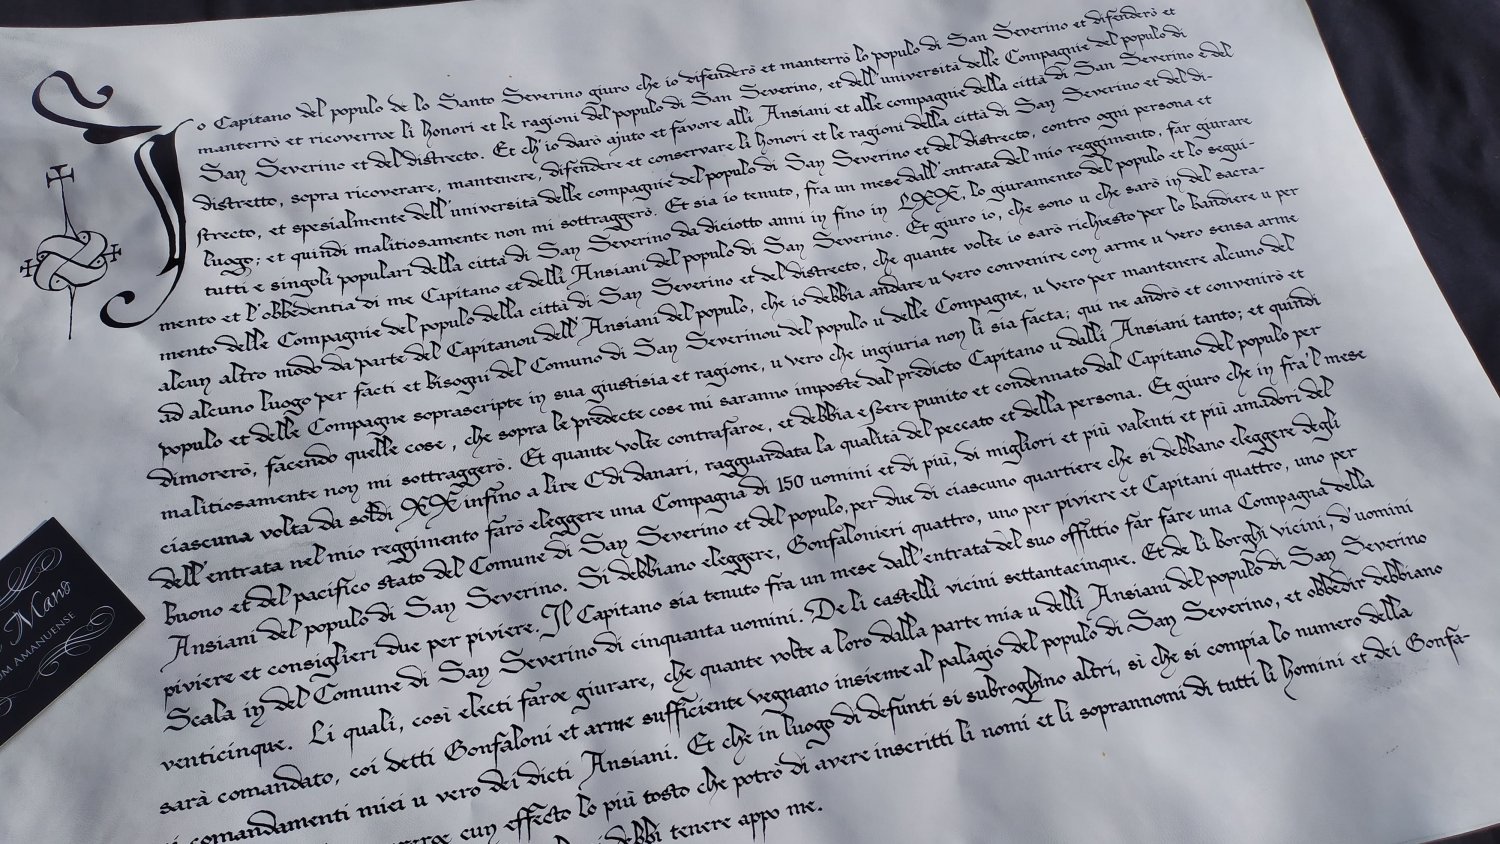 Io Capitano del populo de lo Santo Severino giuro che io difenderò et manterrò lo populo di San Severino et difenderò et
manterrò et ricoverroe li honori et le ragioni del populo di San Severino, et dell'università delle Compagnie del populo di
San Severino et del distrecto. Et ch'io darò ajuto et favore alli Ansiani et alle compagnie della città di San Severino e del
distretto, sopra ricoverare, mantenere, difendere et conservare li honori et le ragioni della città di San Severino et del di-
strecto, et spesialmente dell'università delle compagnie del populo di San Severino et del distrecto, contro ogni persona et
luogo; et quindi malitiosamente non mi sottraggerò. Et sia io tenuto, fra un mese dall'entrata del mio reggimento, far giurare
tutti e singoli populari della città di San Severino da diciotto anni in fino in LXX, lo giuramento del populo et lo segui-
mento et l'obbedentia di me Capitano et delli Ansiani del populo di San Severino. Et giuro io, che sono u che sarò in del sacra-
mento delle Compagnie del populo della città di San Severino et del distrecto, che quante volte io sarò richiesto per lo bandiere u per
alcun altro modo da parte del Capitanou dell'Ansiani del populo, che io debbia andare u vero convenire con arme u vero sensa arme
ad alcuno luogo per facti et bisogni del Comuno di San Severinou del populo u delle Compagne, u vero per mantenere alcuno del
populo et delle Compagne soprascripte in sua giustisia et ragione, u vero che ingiuria non li sia facta; qui ne andrò et convenirò et
dimorerò, facendo quelle cose, che sopra le predecte cose mi saranno imposte dal predicto Capitano u dalli Ansiani tanto; et quindi
malitiosamente non mi sottraggerò. Et quante volte contrafaroe, et debbia essere punito et condennato dal Capitano del populo per
ciascuna volta da soldi XX infino a lire C di danari, ragguardata la qualità del peccato et della persona. Et giuro che in fra'l mese
dell'entrata nel mio reggimento farò eleggere una Compagna di 150 uomini et di più, di migliori et più valenti et più amadori del
buono et del pacifico stato del Comune di San Severino et del populo, per due di ciascuno quartiere che si debbano eleggere degli
Ansiani del populo di San Severino. Si debbiano eleggere, Gonfalonieri quattro, uno per piviere et Capitani quattro, uno per
piviere et consiglieri due per piviere. Il Capitano sia tenuto fra un mese dall'entrata del suo offittio far fare una Compagna della
Scala in del Comune di San Severino di cinquanta uomini. De li castelli vicini settantacinque. Et de li borghi vicini, d'uomini
venticinque. Li quali, così electi faroe giurare, che quante volte a loro dalla parte mia u delli Ansiani del populo di San Severino
sarà comandato, coi detti Gonfaloni et arme sufficiente vegnano insieme al palagio del populo di San Severino, et obbedir debbiano
comandamenti miei u vero dei dicti Ansiani. Et che in luogo di defunti si subroghino altri, sì che si compia lo numero della
cun effecto lo più tosto che potrò di avere inscritti li nomi et li soprannomi di tutti li homini et dei Gonfa-
debbi tenere appo me.
Mans
OM AMANUENSE